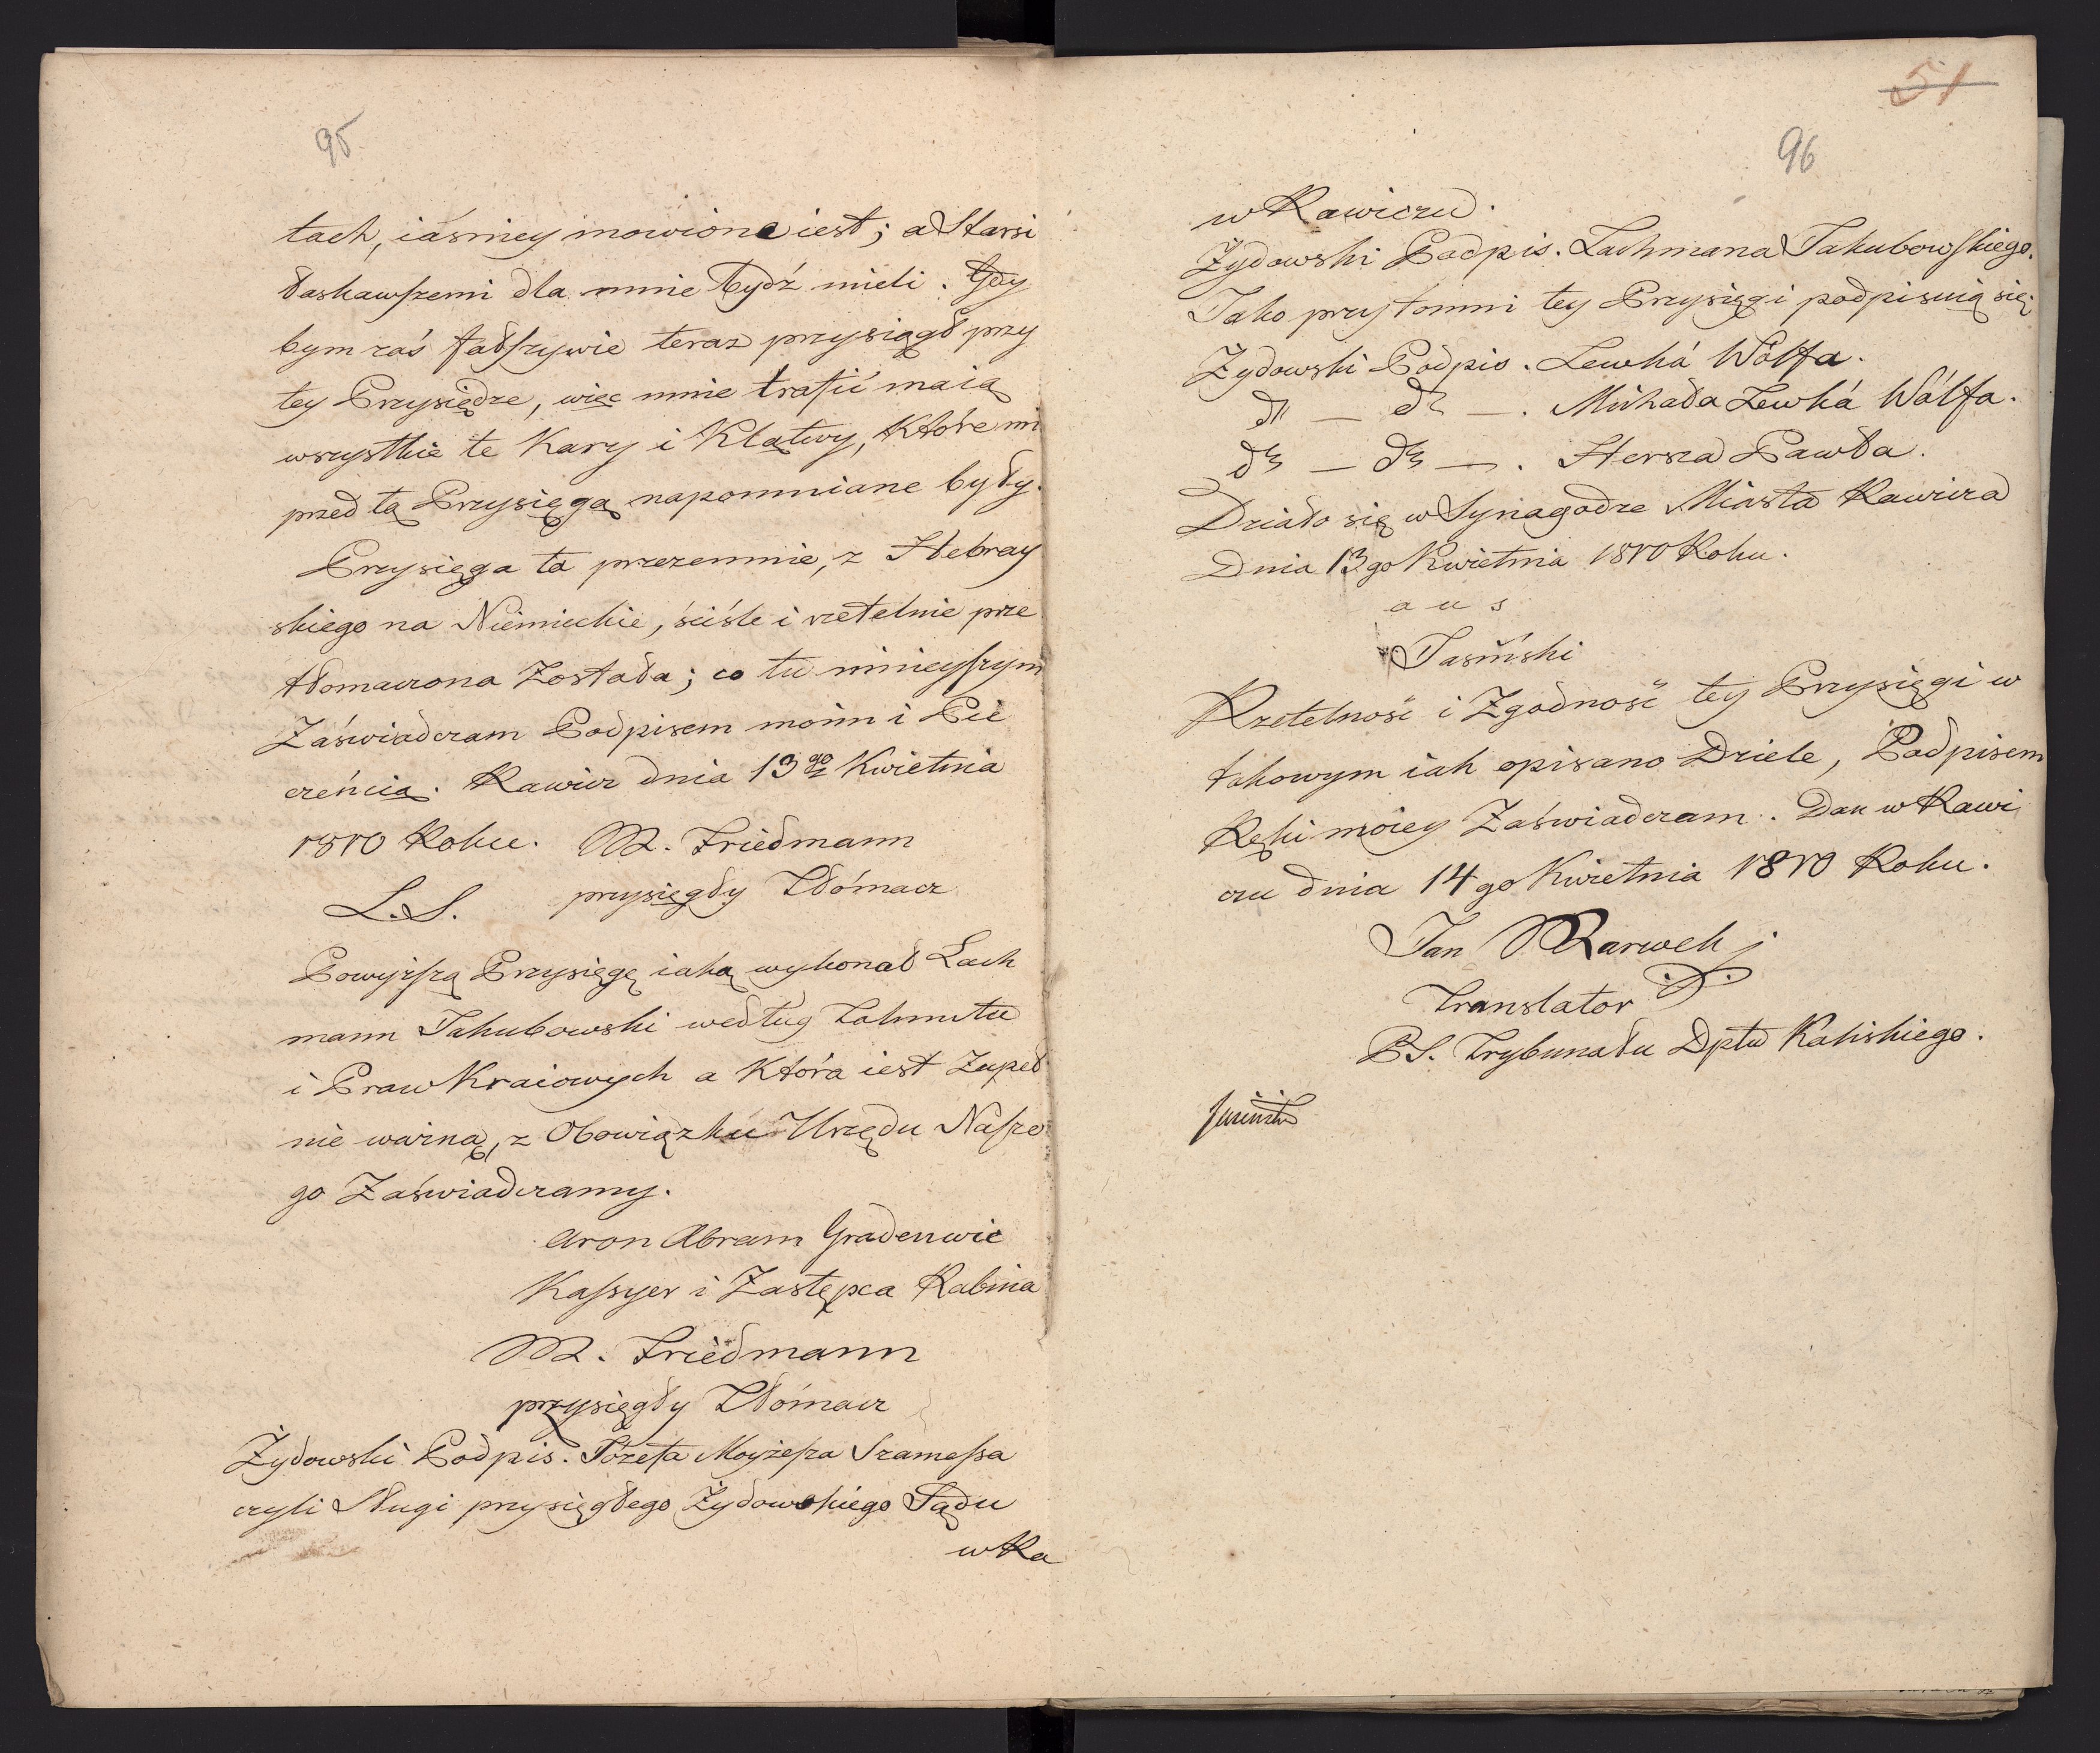 95
tach, iaśniey mowione iest; a Starsi
łaskawszemi dla mnie bydź mieli. Gdy
bym zaś fałszywie teraz przysiągł przy
tey Przysiędze, więc mnie trafić maią
wszystkie te Kary i Klątwy, które mi
przed tą Przysięgą napomniane były.
Przysięga ta przezemnie, z Hebray
skiego na Niemieckie, ściśle i rzetelnie prze
tłomaczona Została; co tu ninieyszym
Zaświadczam Podpisem moim i Pie
częńcią. Rawicz dnia 13go Kwietnia
1810 Roku. M. Friedmann
L.S. przysięgły Tłómacz
Powyższą Przysięgę iaką wykonał Lach
mann Jakubowski według Talmutu
i Praw Kraiowych a Która iest Zupeł
nie ważną, z Obowiązku Urzędu Nasze
go Zaświadczamy.
Aron Abram Gradenwic
Kassyer i Zastępca Rabina
M. Friedmann
przysięgły Tłómacz
Żydowski Podpis. Józefa Moyżesza Szamessa
czyli Sługi przysięgłego Żydowskiego Sądu
w Ra
51
96
w Rawiczu.
Żydowski Podpis. Lachmana Jakubowskiego.
Jako przytomni tey Przysięgi podpisuią się;
Żydowski Podpis. Lewká Wólfa.
dt — dt —. Michała Lewká Wólfa.
dto — dto —. Hersza Pawła.
Działo się w Synagodze Miasta Rawicza
Dnia 13go Kwietnia 1810 Roku.
a u s
Jasiński
Rzetelność i Zgodność tey Przysięgi w
takowym iak opisano Dziele, Podpisem
Ręki moiey Zaświadczam. Dan w Rawi
czu dnia 14go Kwietnia 1810 Roku.
Jan
Translator
PS. Trybunału Dptu Kaliskiego.